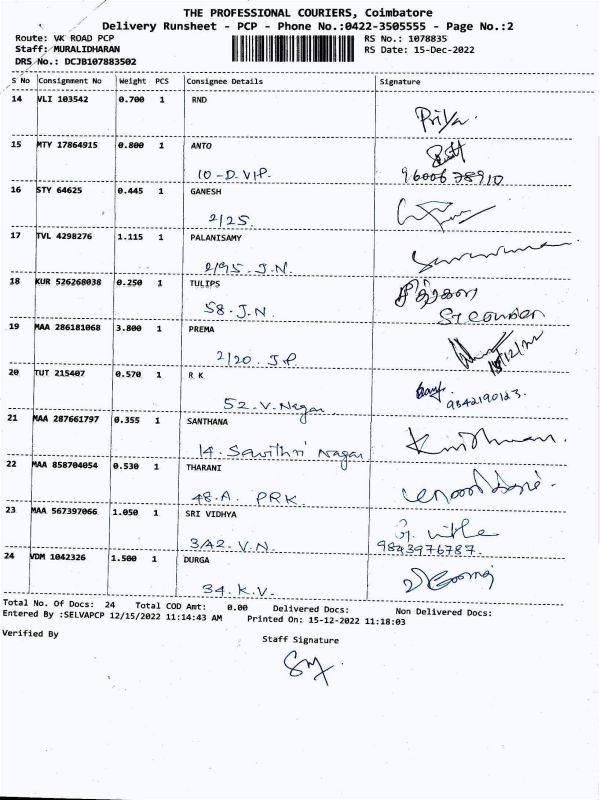 THE PROFESSIONAL COURIERS, Coimbatore
Delivery Runsheet - PCP - Phone No.:0422-3505555 - Page No.:2
Route: VK ROAD PCP RS No.: 1078835
Staff: MURALIDHARAN RS Date: 15-Dec-2022
DRS No.: DCJB107883502
S No Consignment No Weight PCS Consignee Details Signature
14 VLI 103542 0.700 1 RND
Priya.
15 MTY 17864915 0.800 1 ANTO
10-D.V.I.P.
16 STY 64625 0.445 1 GANESH
2/25.
17 TVL 4298276 1.115 1 PALANISAMY
2/95. J.N.
18 KUR 526268038 0.250 1 TULIPS
58. J.N.
19 MAA 286181068 3.800 1 PREMA
2/20. J.P
20 TUT 215407 0.570 1 R K
52. V. Nagar 9842190123.
21 MAA 287661797 0.355 1 SANTHANA
14. Savithri Nagar
22 MAA 858704054 0.530 1 THARANI
48-A. PRK.
23 MAA 567397066 1.050 1 SRI VIDHYA
3A2. V.N. 9843976787.
24 VDM 1042326 1.500 1 DURGA
34. K.V.
Total No. Of Docs: 24 Total COD Amt: 0.00 Delivered Docs: Non Delivered Docs:
Entered By :SELVAPCP 12/15/2022 11:14:43 AM Printed On: 15-12-2022 11:18:03
Verified By Staff Signature